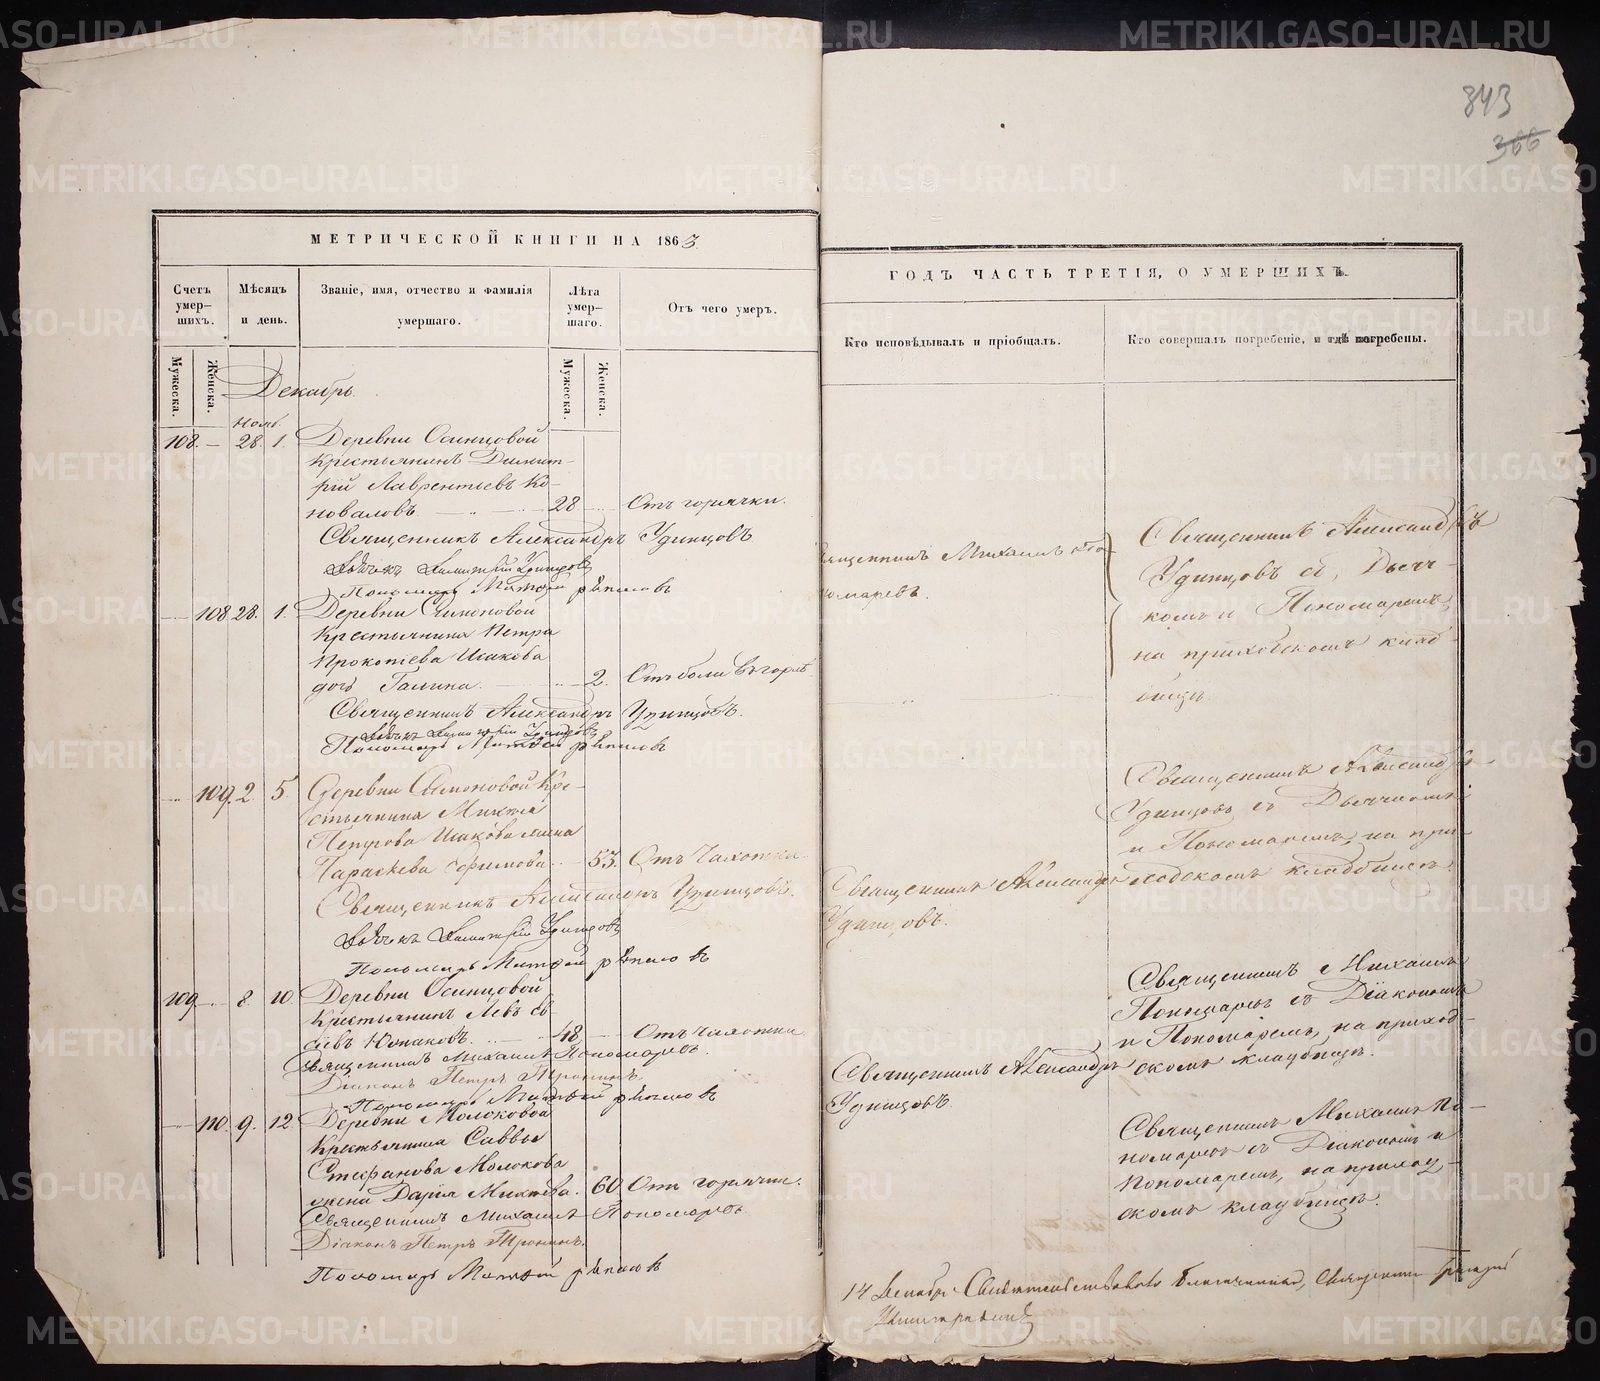 843
366
МЕТРИЧЕСКОЙ КНИГИ НА 1863
ГОДЪ ЧАСТЬ ТРЕТІЯ, О УМЕРШИХЪ.
Счетъ умер-шихъ.
Мужеска.
Женска.
Мѣсяцъ и день.
Званіе, имя, отчество и фамилія умершаго.
Лѣта умер-шаго.
Мужеска.
Женска.
Отъ чего умеръ.
Кто исповѣдывалъ и пріобщалъ.
Кто совершалъ погребеніе, и гдѣ погребены.
Декабрь.
Нояб.
108. — 28. 1. Деревни Осинцовой
крестьянинъ Димит-
рій Лаврентьевъ Ко-
новаловъ 28 Отъ горячки.
Священникъ Александръ Удинцовъ
Дьячекъ Димитрій Удинцовъ
Пономарь Матѳей
Священникъ Михаилъ По-
номаревъ.
Священникъ Александръ
Удинцовъ съ Дьяч-
комъ и Пономаремъ,
на приходскомъ клад-
бищѣ
— 108. 28. 1. Деревни Симоновой
крестьянина Петра
Исакова
дочь Галина 2. Отъ боли въ горлѣ
Священникъ Александръ Удинцовъ.
Дьячекъ Димитрій Удинцовъ
Пономарь Матѳей
— 109. 2. 5. Деревни Симоновой кре-
стьянина Микиты
Петрова Исакова жена
Параскева 53. Отъ Чахотки.
Священникъ Удинцовъ.
Дьячекъ Димитрій Удинцовъ
Пономарь Матѳей
Священникъ Александръ
Удинцовъ.
Священникъ Александръ
Удинцовъ съ Дьячкомъ
и Пономаремъ, на при-
ходскомъ кладбищѣ.
109. — 8. 10. Деревни Осинцовой
крестьянинъ
48 — Отъ Чахотки
Священникъ Михаилъ Пономаревъ.
Діаконъ Петръ Тронинъ
Пономарь Матѳей
Священникъ Александръ
Удинцовъ
Священникъ Михаилъ
Пономаревъ съ Діакономъ
и Пономаремъ, на приход-
скомъ кладбищѣ.
— 110. 9. 12. Деревни Молоковой
крестьянина Саввы
Стефанова Молокова
жена Дарія 60. Отъ горячки.
Священникъ Михаилъ Пономаревъ
Діаконъ Петръ Тронинъ.
Пономарь Матѳей
Священникъ Михаилъ По-
номаревъ съ Діакономъ и
Пономаремъ, на приход-
скомъ кладбищѣ.
14 Декабря Свидѣтельствовалъ Благочинный, Священникъ
METRIKI.GASO-URAL.RU